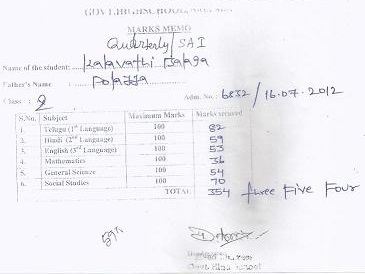 GOVT.HIGHSCHOOL,
MARKS MEMO
Quarterly/SAI
Name of the student: Kalavathi Balaga
Father's Name : Polayya
Class : 2 Adm. No : 6832/16.07.2012
S.No. Subject Maximum Marks Marks secured
1. Telugu (1st Language) 100 82
2. Hindi (2nd Language) 100 59
3. English (3rd Language) 100 53
4. Mathematics 100 36
5. General Science 100 54
6. Social Studies 100 70
TOTAL 354 three Five Four
59%